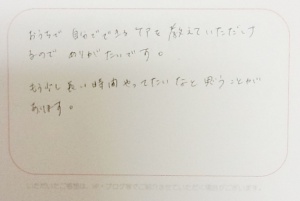 おうちで 自分でできるケアを教えていただけ
るので ありがたいです。
もう少し長い時間やってたいなと思うことが
あります。
いただいたご感想は、